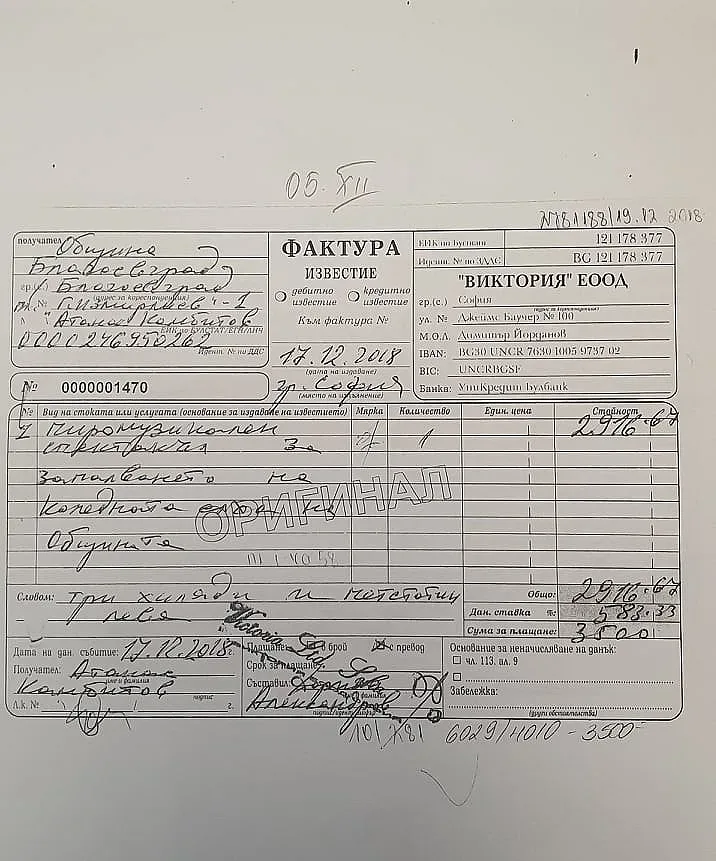 05. XII
№81188/19.12 2018
получател Община
Благоевград
гр.(с.) Благоевград
(адрес за кореспонденция)
пл. № Г. Измирлиев" - 1
Атанас Камбитов
ЕИК по БУЛСТАТ/ЕГН/ЛНЧ
0000246950262
Идент. № по ДДС
№ 0000001470
ФАКТУРА
ИЗВЕСТИЕ
дебитно известие
кредитно известие
Към фактура №
17.12.2018
(дата на издаване)
гр. София
(място на изпълнение)
ЕИК по Булстат 121 178 377
Идент. № по ЗДДС BG 121 178 377
"ВИКТОРИЯ" ЕООД
гр.(с.) София
ул. № Джеймс Баучер № 100
М.О.Л. Димитър Йорданов
IBAN: BG30 UNCR 7630 1005 9737 02
BIC: UNCRBGSF
Банка: УниКредит Булбанк
№ Вид на стоката или услугата (основание за издаване на известието) Мярка Количество Един. цена Стойност
1 пиромузикален 1 2916.67
спектакъл за
запалването на
Коледната елха на
Общината
ОРИГИНАЛ
Словом: три хиляди и петстотин
лева
Общо: 2916.67
Дан. ставка %: 583.33
Сума за плащане: 3500
Дата на дан. събитие: 17.12.2018 г.
Получател: Атанас
име и фамилия
Камбитов
подпис
Л.к. № г.
Плащане в брой с превод
Срок за плащане
Съставил
Александров
Victoria
Основание за неначисляване на данък:
чл. 113, ал. 9
Забележка:
(други обстоятелства)
6029/4010 - 3500